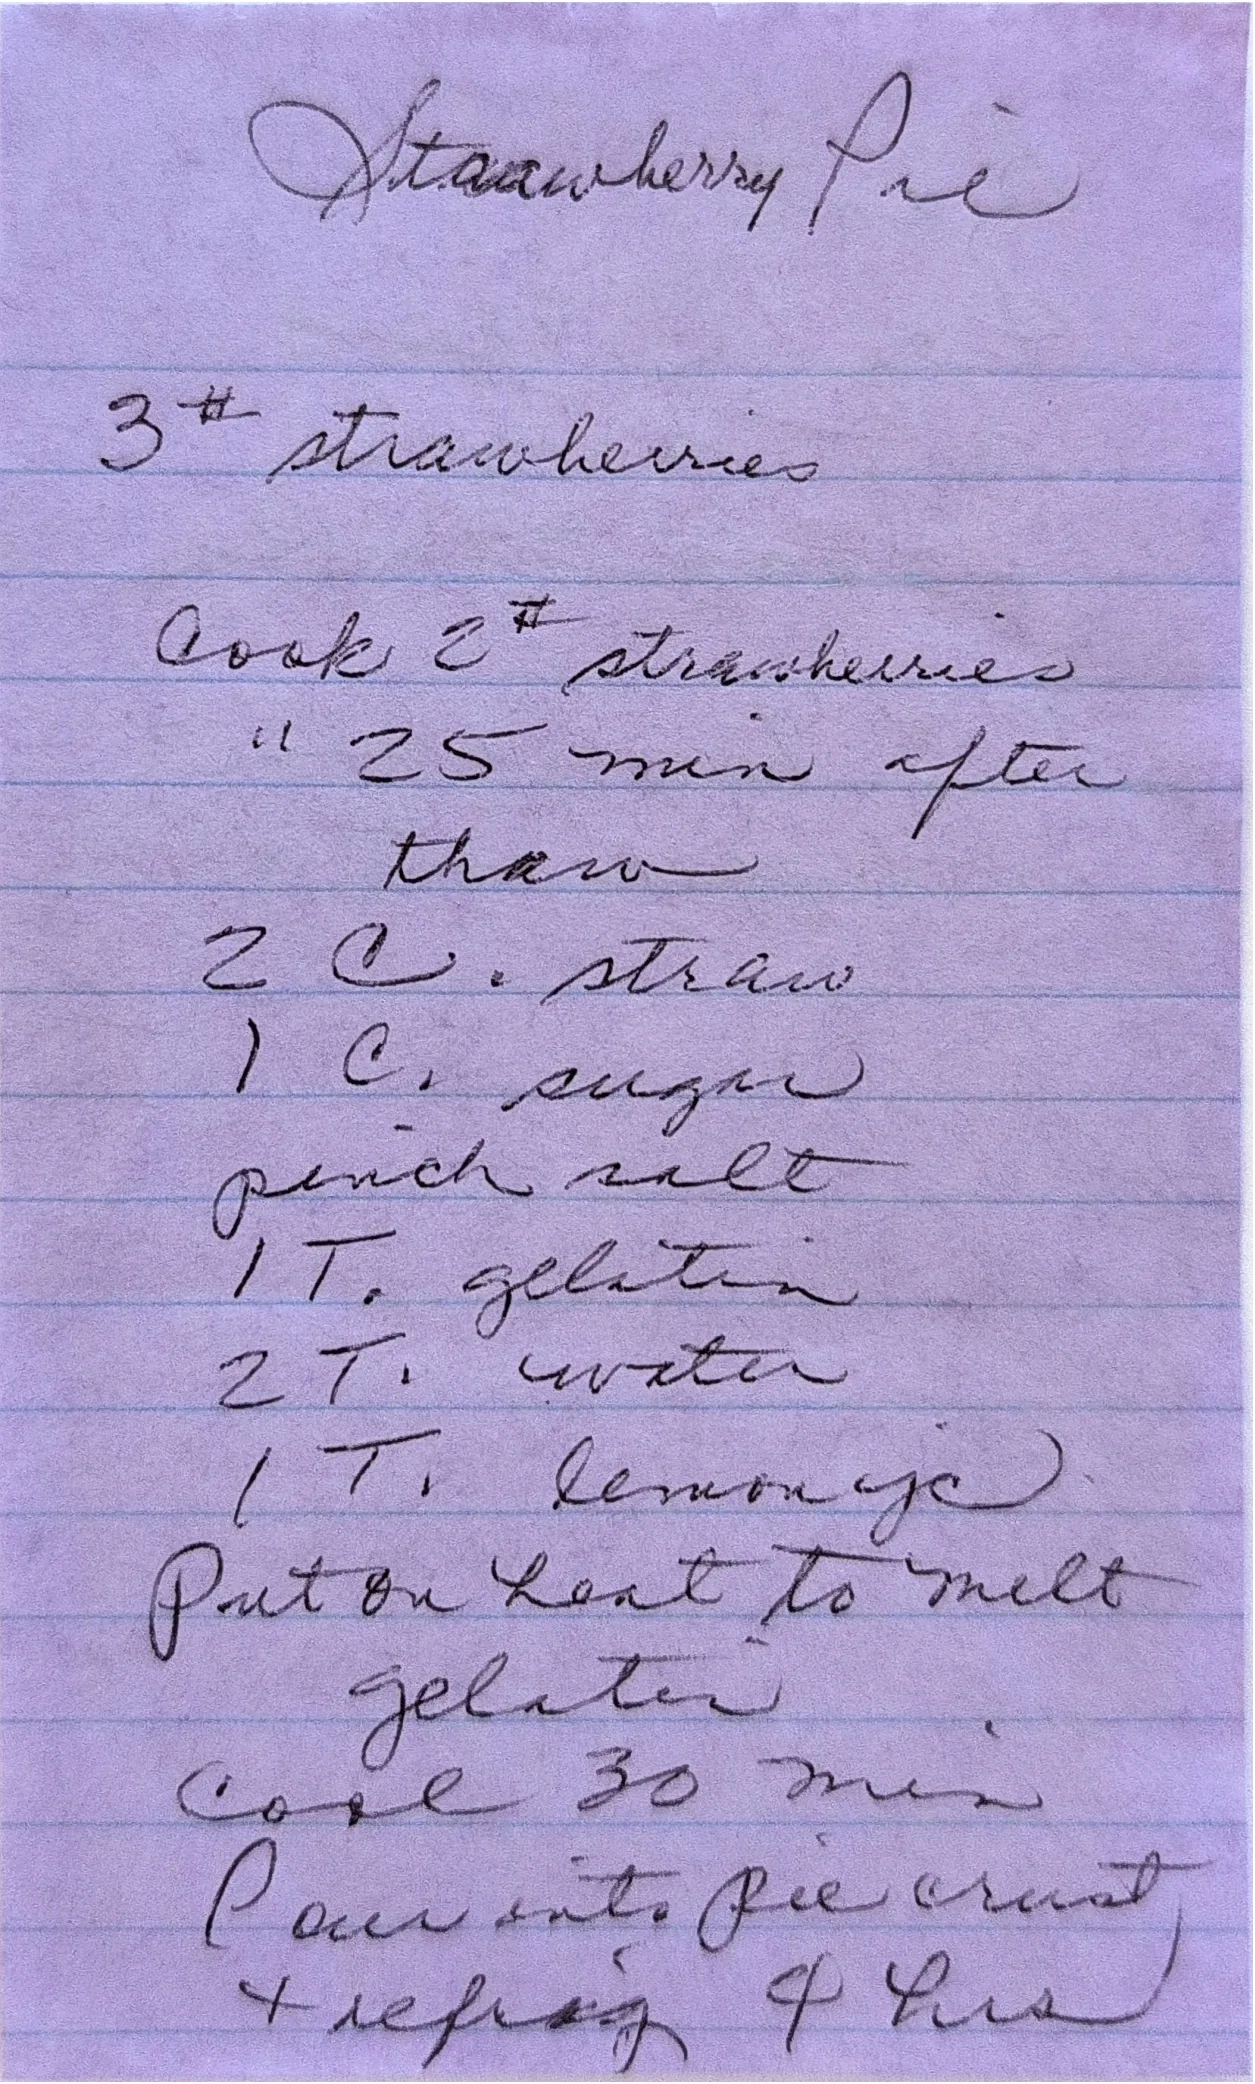 Strawberry Pie
3# strawberries
Cook 2# strawberries
" 25 min after
thaw
2 C. straw
1 C. sugar
pinch salt
1 T. gelatin
2 T. water
1 T. lemon jc
Put on heat to melt
gelatin
Cool 30 min
Pour into pie crust
+ refrig 4 hrs